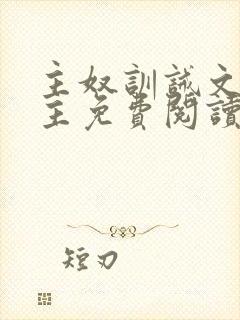 主奴訓誡文
主免費閱讀
短刃